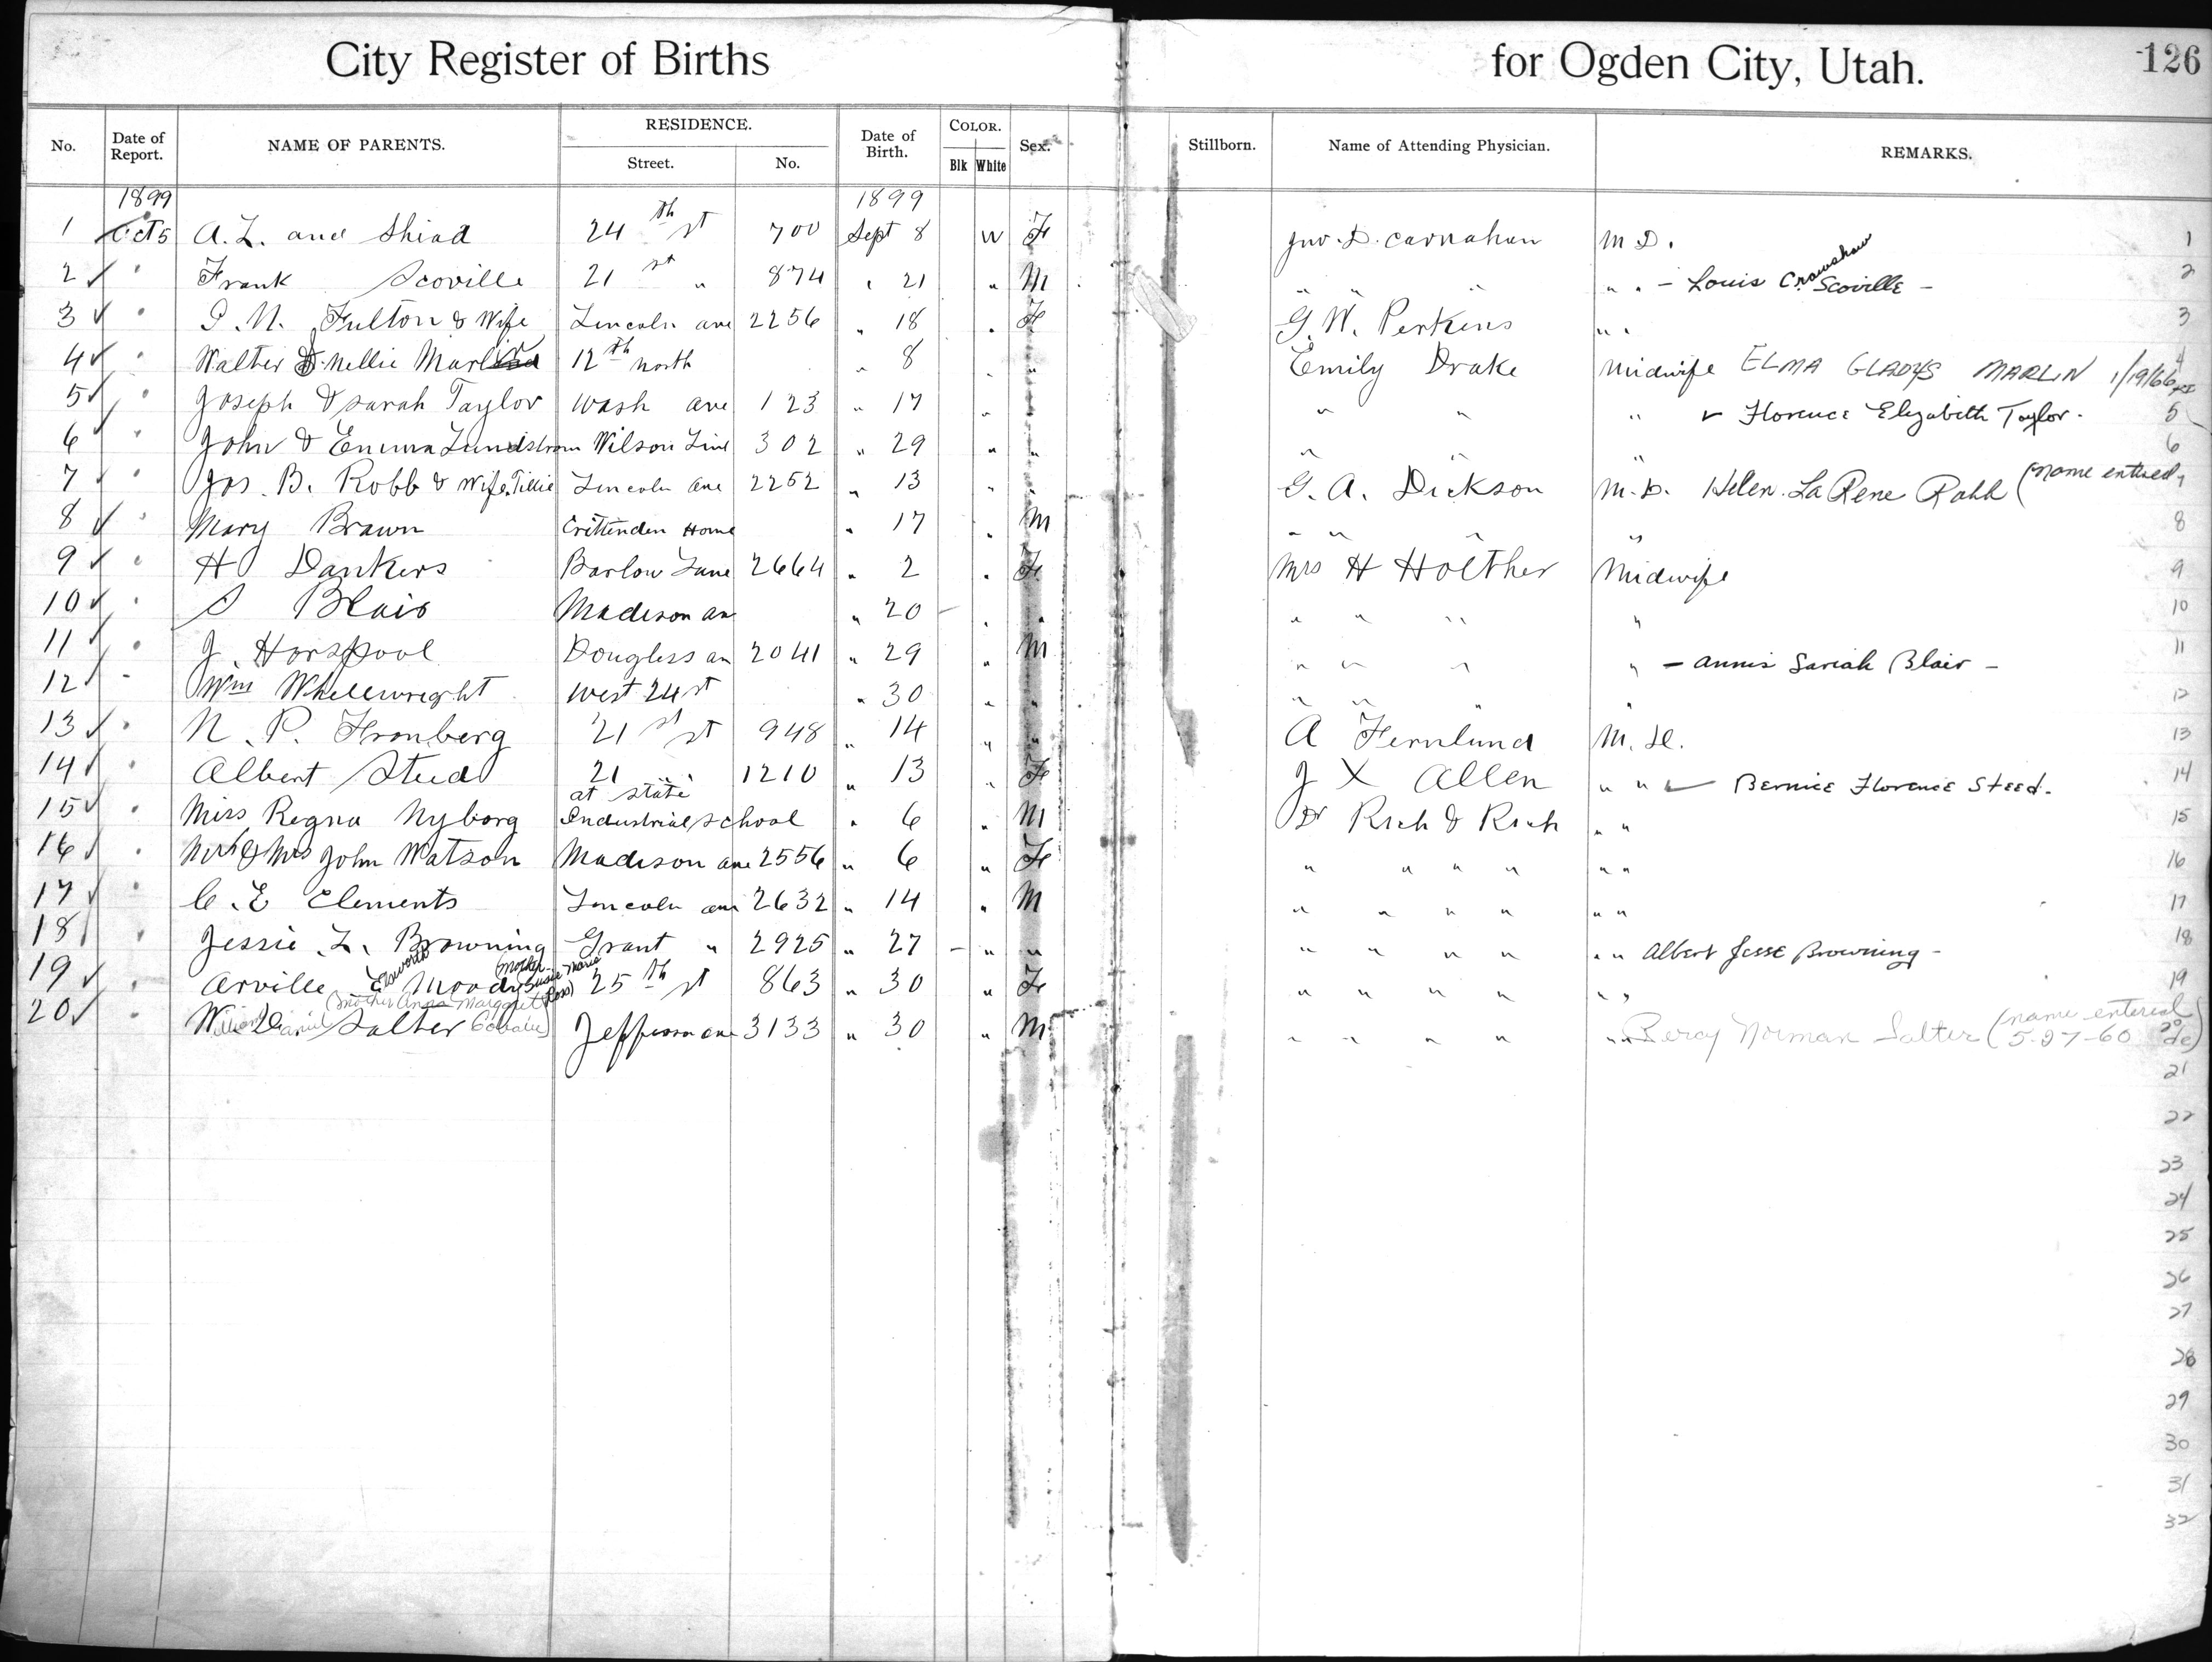 City Register of Births for Ogden City, Utah. 126
No. Date of Report. NAME OF PARENTS. RESIDENCE. Street. No. Date of Birth. COLOR. Blk White Sex. Stillborn. Name of Attending Physician. REMARKS.
1899 1899
1 Oct 5 A. L. and Shiad 24 th st 700 Sept 8 W F Jno. D. Carnahan M D. 1
2 ✓ " Frank Scoville 21 st " 874 " 21 " M " " " " " - Louis Crawshaw Scoville - 2
3 ✓ " P. N. Fulton & Wife Lincoln ave 2256 " 18 " F G. W. Perkins " " 3
4 ✓ " Walter & Nellie Marlin 12 th north " 8 " " Emily Drake Midwife ELMA GLADYS MARLIN 1/19/66 4
5 ✓ " Joseph & Sarah Taylor Wash ave 123 " 17 " " " " " ✓ Florence Elizabeth Taylor. 5
6 ✓ " John & Emma Lundstrom Wilson Line 302 " 29 " " " " 6
7 ✓ " Jos. B. Robb & Wife Tillie Lincoln ave 2252 " 13 " " G. A. Dickson M. D. Helen LaRene Robb (name entered 7
8 ✓ " Mary Brown Crittenden Home " 17 " M " " " " 8
9 ✓ " H Dankers Barlow Lane 2664 " 2 " F Mrs H Hoelther Midwife 9
10 ✓ " S Blair Madison av " 20 " " " " " " 10
11 ✓ " J. Horspool Douglass av 2041 " 29 " M " " " " - Annis Sariah Blair - 11
12 ✓ " Wm Whellewright West 24 st " 30 " " " " " " 12
13 ✓ " N. P. Fronberg 21 st st 948 " 14 " " A Fernlund M. D. 13
14 ✓ " Albert Steed 21 " 1210 " 13 " F J X Allen " " ✓ Bernice Florence Steed. 14
15 ✓ " Miss Regna Nyborg at state Industrial School " 6 " M Dr Rich & Rich " " 15
16 ✓ " Mr & Mrs John Watson Madison ave 2556 " 6 " F " " " " " " 16
17 ✓ " C. E Clements Lincoln ave 2632 " 14 " M " " " " " " 17
18 " Jessie L. Browning Grant " 2925 " 27 " " " " " " " " Albert Jesse Browning - 18
19 ✓ " Arville Elsworth Moody (Mother Susie Marie Ross) 25 th st 863 " 30 " F " " " " " " 19
20 ✓ " William Daniel Salter (Mother Anna Margaret) Jefferson ave 3133 " 30 " M " " " " " " Percy Norman Salter (name entered 5-27-60 dc) 20
21
22
23
24
25
26
27
28
29
30
31
32